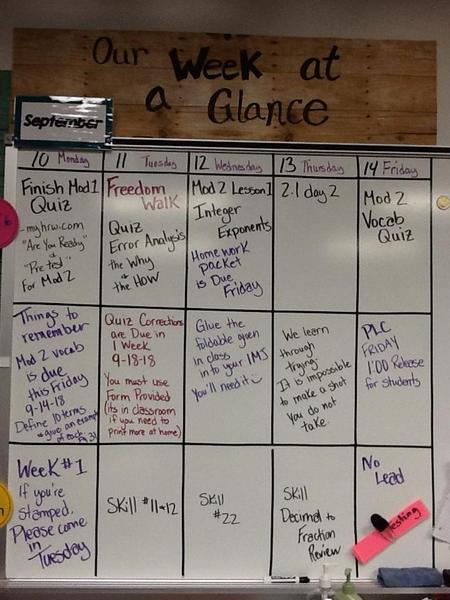 Our Week at
a Glance
September
10 Monday
11 Tuesday
12 Wednesday
13 Thursday
14 Friday
Finish Mod 1
Quiz
- my.hrw.com
"Are You Ready"
"Pretest"
For Mod 2
Freedom
Walk
Quiz
Error Analysis
the Why
& the How
Mod 2 Lesson 1
Integer
Exponents
Homework
packet
is Due
Friday
2.1 day 2
Mod 2
Vocab
Quiz
Things to
remember
Mod 2 vocab
is due
this Friday
9-14-18
Define 10 terms
& give an example
of each
Quiz Corrections
are Due in
1 Week
9-18-18
You must use
Form Provided
(its in classroom
if you need to
print more at home)
Glue the
foldable given
in class
in to your IMJ
You'll need it
We learn
through
trying.
It is impossible
to make a shot
you do not
take.
PLC
FRIDAY
1:00 Release
for students
Week #1
If you're
Stamped,
Please come
in
Tuesday
Skill #11 & 12
Skill
#22
Skill
Decimal to
Fraction
Review
No
Lead
Testing